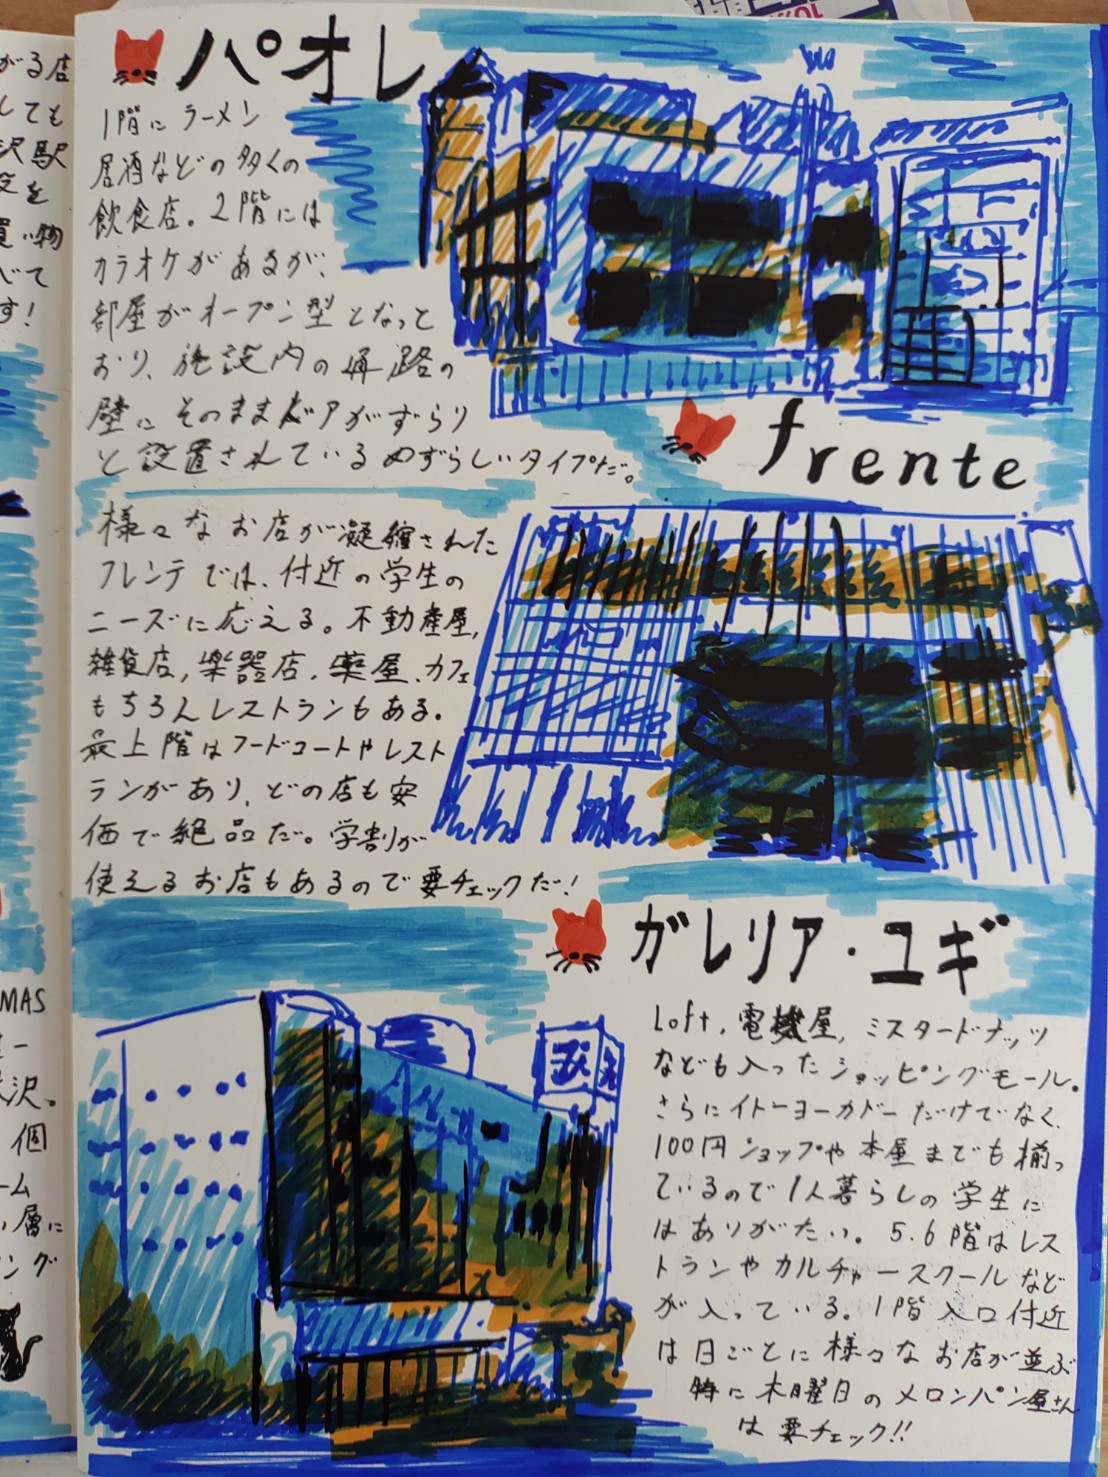 がる店
しても
沢駅
を
買い物
べて
す！
MAS
沢。
個
ーム
層に
ング
パオレ
1階に ラーメン
居酒などの多くの
飲食店。2階には
カラオケがあるが、
部屋がオープン型となっと
おり、施設内の通路の
壁にそのままドアがずらり
と設置されているめずらしいタイプだ。
frente
様々なお店が凝縮された
フレンテでは、付近の学生の
ニーズに応える。不動産屋,
雑貨店,楽器店,薬屋、カフェ
もちろんレストランもある。
最上階はフードコートやレスト
ランがあり、どの店も安
価で絶品だ。学割が
使えるお店もあるので要チェックだ！
ガレリア・ユギ
Loft,電機屋,ミスタードナッツ
なども入ったショッピングモール。
さらにイトーヨーカドーだけでなく、
100円ショップや本屋までも揃っ
ているので1人暮らしの学生に
はありがたい。5.6階はレス
トランやカルチャースクールなど
が入っている。1階入口付近
は日ごとに様々なお店が並ぶ
特に木曜日のメロンパン屋さん
は要チェック!!